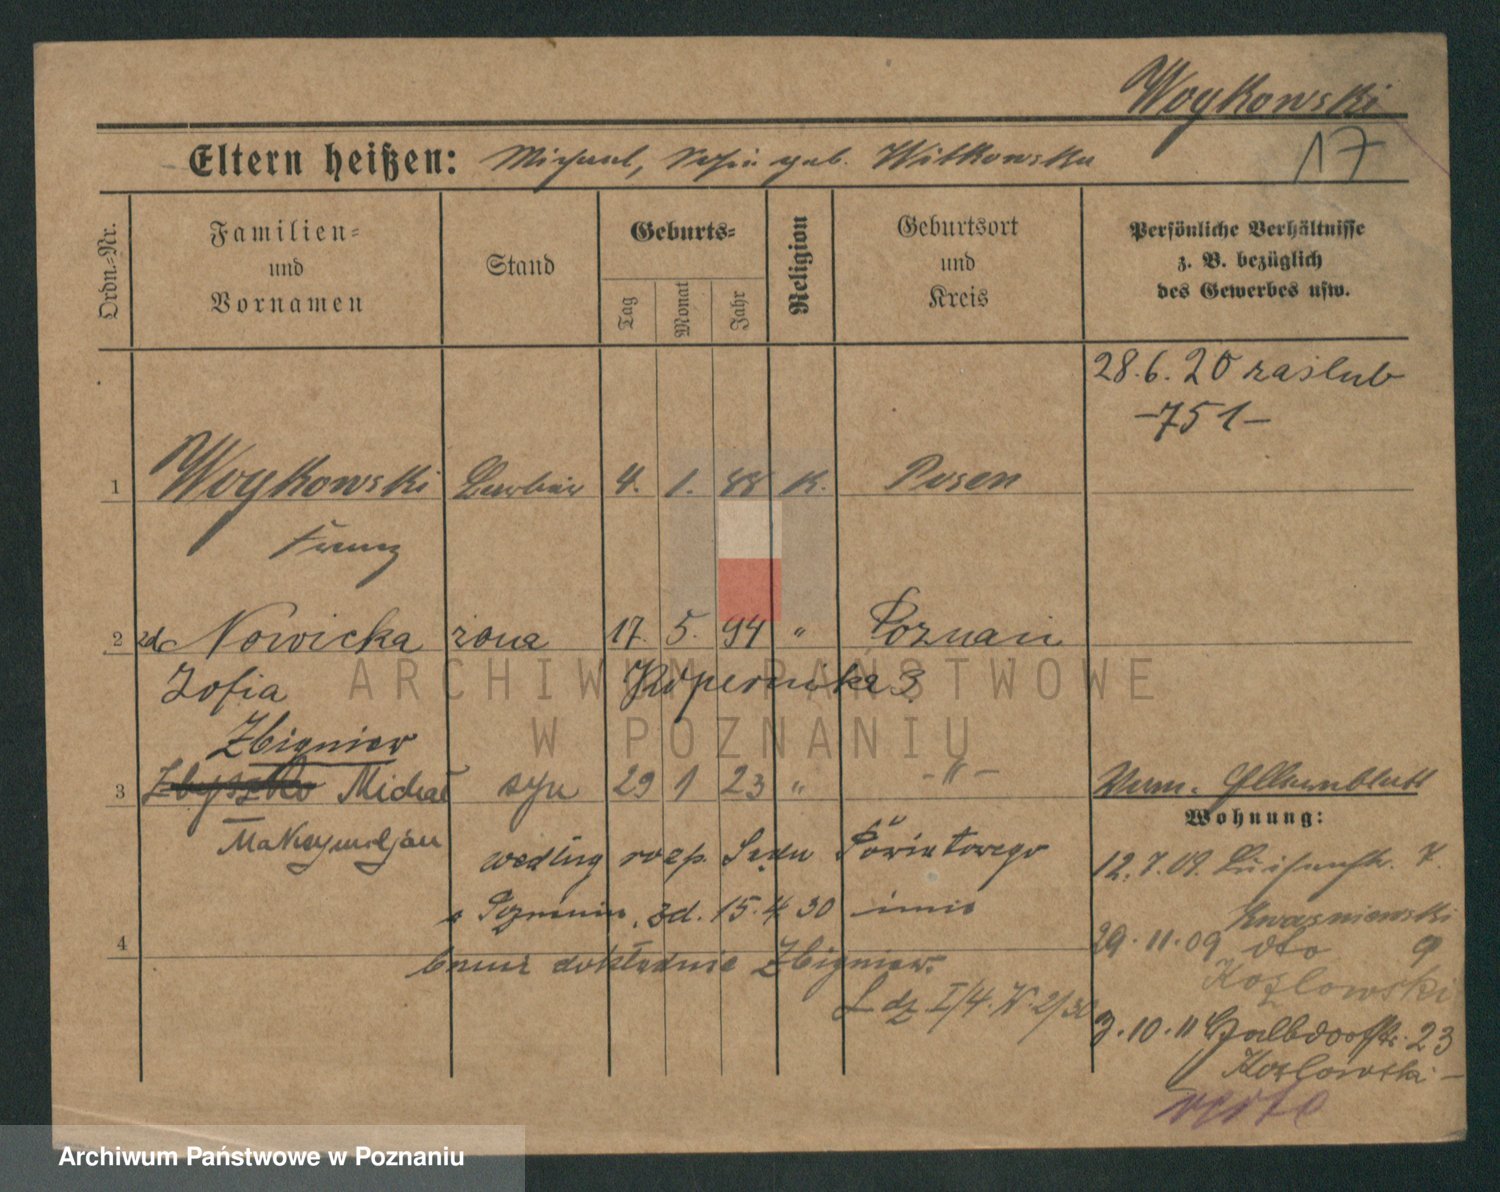 Woykowski
17
Eltern heißen: Michael, Sofie geb. Witkowska
Ordn.=Nr.
Familien=
und
Vornamen
Stand
Geburts=
Tag
Monat
Jahr
Religion
Geburtsort
und
Kreis
Persönliche Verhältnisse
z. B. bezüglich
des Gewerbes usw.
28.6.20 zaślub
-751-
1 Woykowski 4. 1. 88 K. Posen
Franz
2 zd Nowicka żona 17. 5. 94 " Poznań
Zofia Kopernika 3
Zbigniew
3 Zbyszko Michał syn 29 1 23 " -"-
Maksymiljan
Wohnung:
według rozp. Sądu Powiatowego
w Poznaniu, zd. 15.4.30 imię
4
brmi dokładnie Zbigniew.
L dz. I/4. W. 2/30
12.7.09. Luisenstr. 7.
Kwaśniewski
29.11.09 dto 9
Kozlowski
3.10.11 Halbdorfstr. 23
Kozlowski -
verte
ARCHIWUM PAŃSTWOWE
W POZNANIU
Archiwum Państwowe w Poznaniu